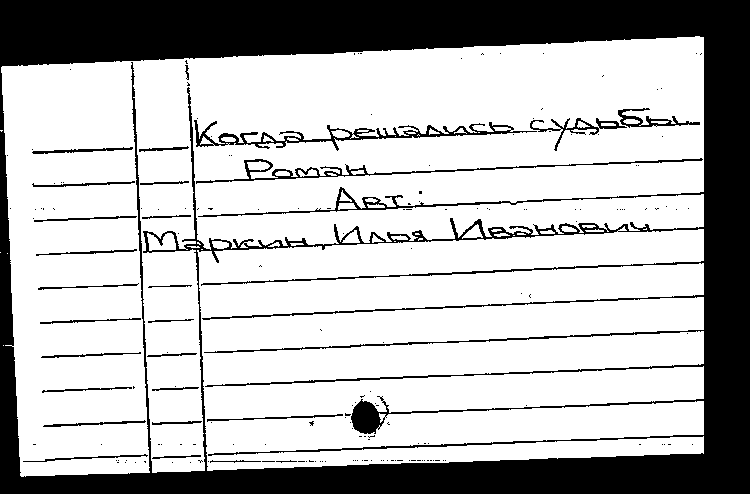 Когда решались судьбы.
Роман
Авт.:
Маркин, Илья Иванович.